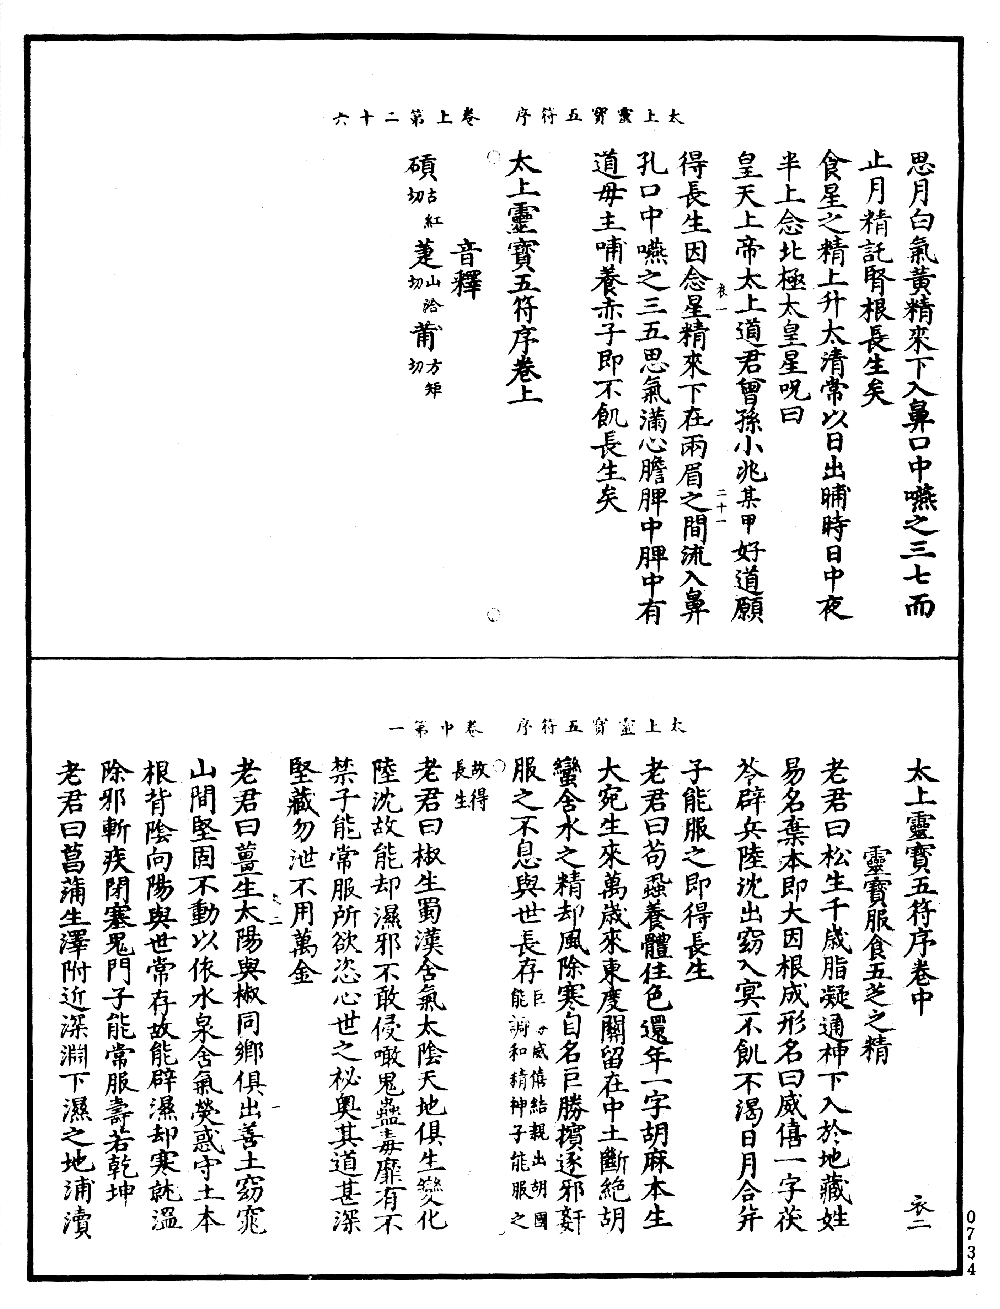 太上靈寶五符序　卷上第二十六
思月白氣黃精來下入鼻口中嚥之三七而
止月精託腎根長生矣
食星之精上升太清常以日出晡時日中夜
半上念北極太皇星呪曰
皇天上帝太上道君曾孫小兆某甲好道願
得長生因念星精來下在兩眉之間流入鼻
孔口中嚥之三五思氣滿心膽脾中脾中有
道母主哺養赤子即不飢長生矣
太上靈寶五符序卷上
音釋
碽古紅切 萐山洽切 莆方矩切
二十一
太上靈寶五符序　卷中第一
太上靈寶五符序卷中
衣二
靈寶服食五芝之精
老君曰松生千歲脂凝通神下入於地藏姓
易名棄本即大因根成形名曰威僖一字茯
苓辟兵陸沈出窈入冥不飢不渴日月合并
子能服之即得長生
老君曰苟蝨養體住色還年一字胡麻本生
大宛生來萬歲來東度關留在中土斷絕胡
蠻含水之精却風除寒自名巨勝擯逐邪姧
服之不息與世長存巨勝威僖結親出胡國能調和精神子能服之
故得長生
老君曰椒生蜀漢含氣太陰天地俱生變化
陸沈故能却濕邪不敢侵噉鬼蠱毒靡有不
禁子能常服所欲恣心世之祕奧其道甚深
堅藏勿泄不用萬金
老君曰薑生太陽與椒同鄉俱出善土窈窕
山間堅固不動以依水泉含氣熒惑守土本
根背陰向陽與世常存故能辟濕却寒就溫
除邪斬疾閉塞鬼門子能常服壽若乾坤
老君曰菖蒲生澤附近深淵下濕之地浦瀆
0734